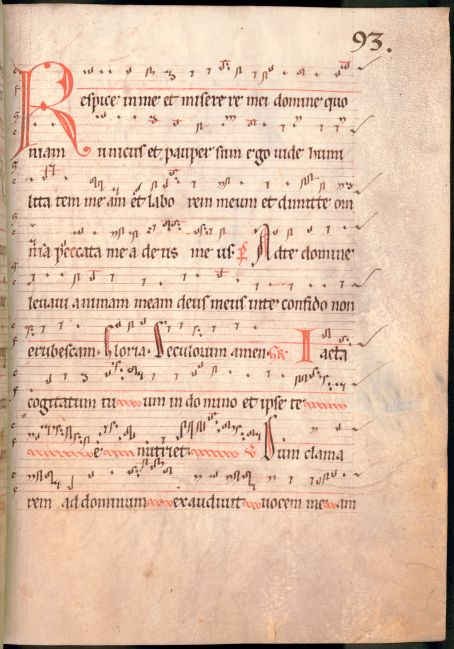 93.
Respice in me et misere re mei domine quo
niam unicus et pauper sum ego vide humi
lita tem me am et labo rem meum et dimitte om
nia peccata me a de us me us. Ad te domine
levavi animam meam deus meus in te confido non
erubescam. Gloria. Seculorum amen. Iacta
cogitatum tu um in do mino et ipse te
e nutriet Dum clama
rem ad dominum exaudivit vocem me am